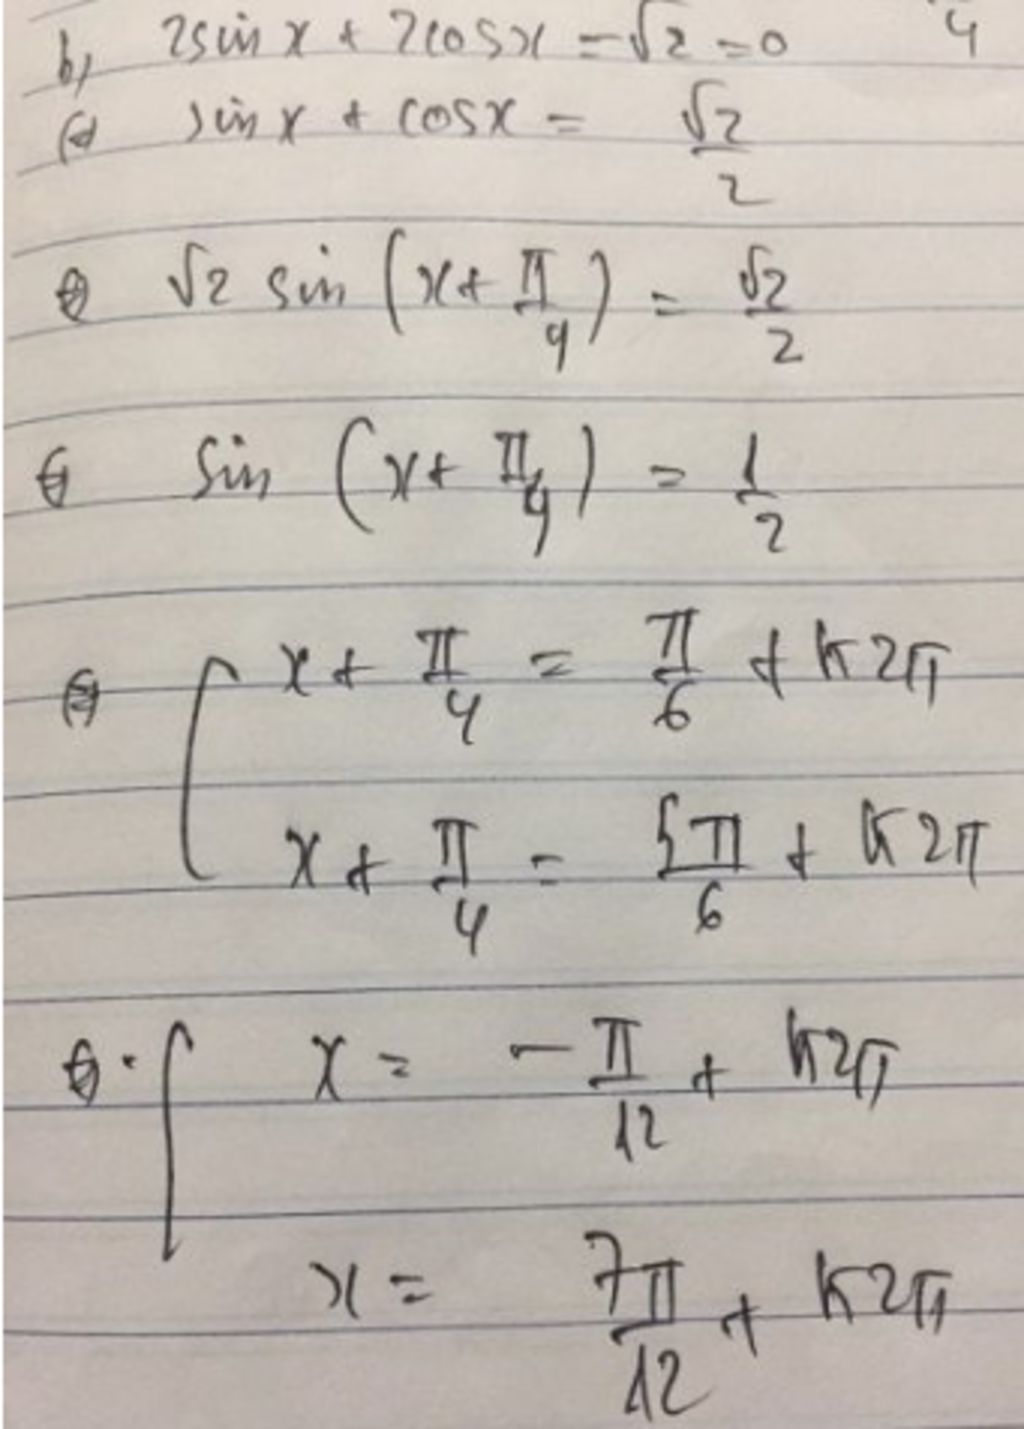 4
b, 2sinx + 2cosx - √2 = 0
⇔ sinx + cosx = √2/2
⇔ √2 sin (x + π/4) = √2/2
⇔ sin (x + π/4) = 1/2
⇔ [ x + π/4 = π/6 + k2π
x + π/4 = 5π/6 + k2π
⇔ [ x = -π/12 + k2π
x = 7π/12 + k2π